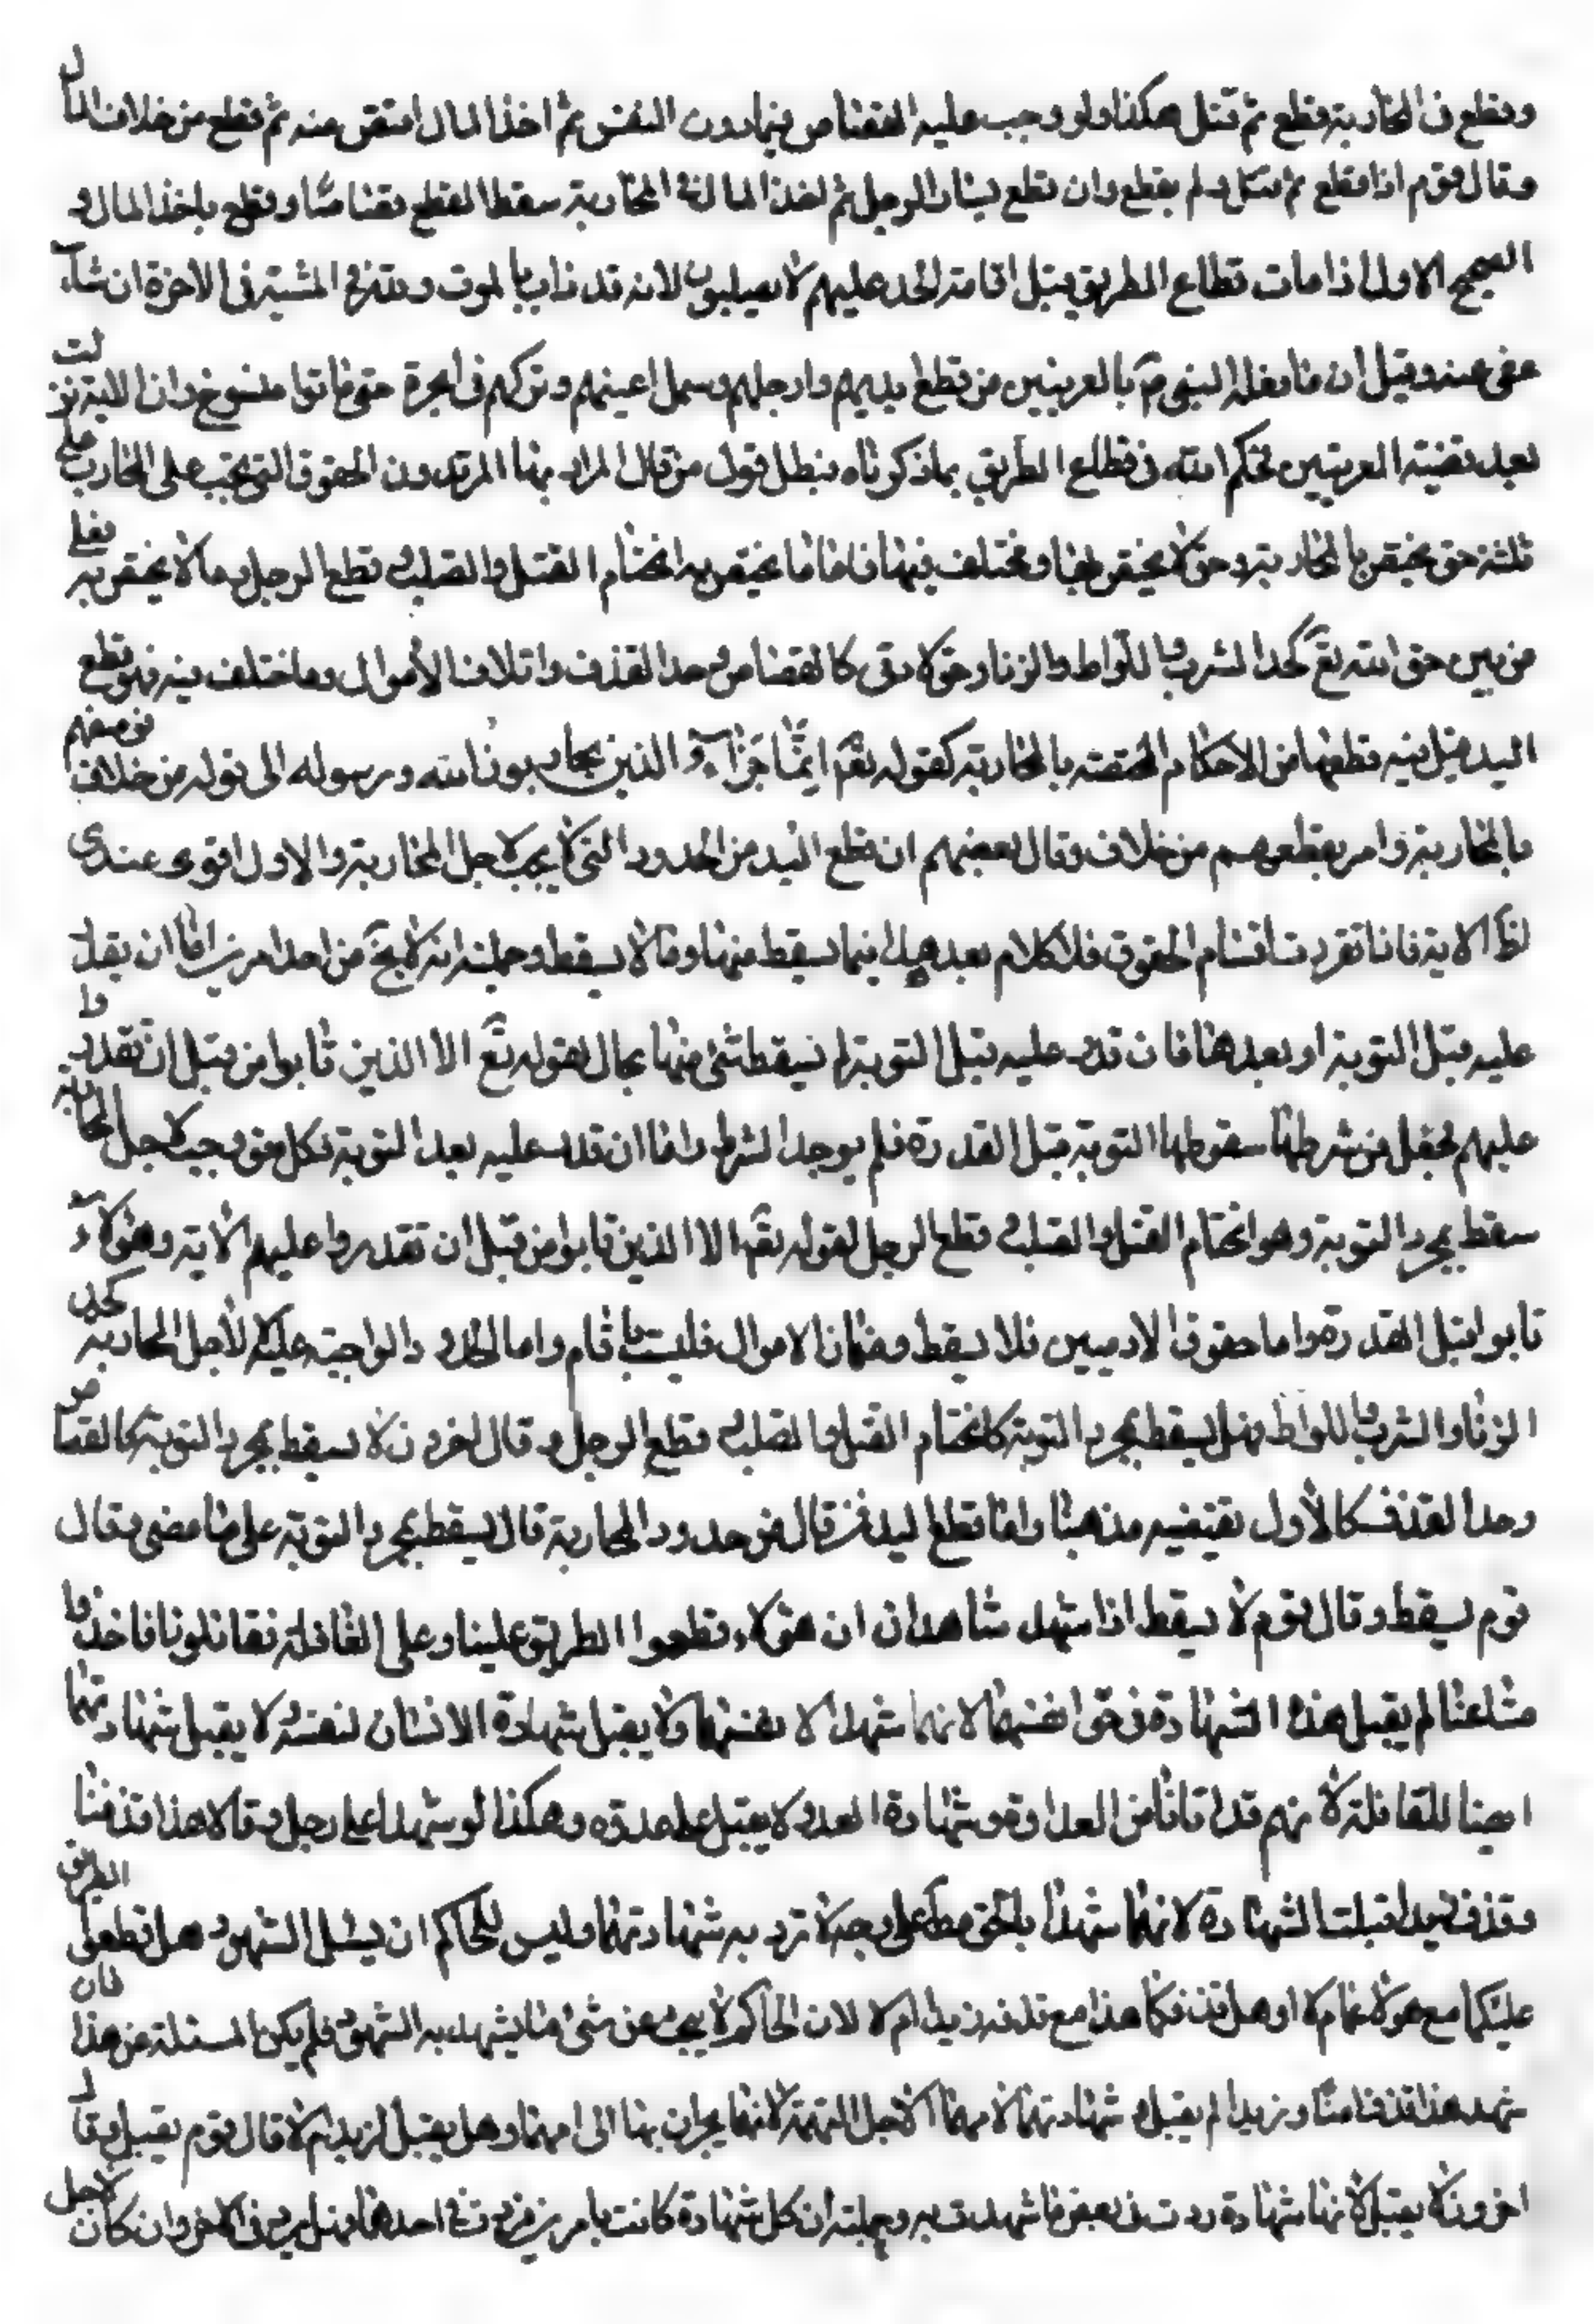 وقطع في المحاربة قطع ثم قتل هكذا ولو وجب عليه القصاص فيما دون النفس ثم اخذ المال اقتص منه ثم قطع من خلاف بالمال
وقال قوم اذا قطع ثم قتل ولم يقطع وان قطع يسار الرجل ثم اخذ المال في المحاربة سقط القطع قصاصا وقطع باخذ المال و
الصحيح الاول اذا مات قطاع الطريق قبل اقامة الحد عليهم لا يصلبون لانه قد فات بالموت وهو في المشية في الاخرة ان شاء
عفى عنه وقيل ان ما فعله النبي ص بالعرينيين من قطع ايديهم وارجلهم وسمل اعينهم وتركهم في الحرة حتى ماتوا منسوخ وان الاية نزلت
بعد قضية العرينيين تحكم الله في قطاع الطريق بما ذكرناه فبطل قول من قال المراد بها المرتدون الحقوق التي يجب على المحارب على
ثلثة حق يختص بالمحاربة وحق لا يختص بها ومختلف فيها فاما ما يختص به انحتام القتل والصلب وقطع الرجل وما لا يختص به فعلى
ضربين حق الله تع كحد الشرب واللواط والزنا وحق لادمي كالقصاص وحد القذف واتلاف الأموال وما اختلف فيه فهو قطع
اليد قيل فيه قطعها من الاحكام المختصة بالمحاربة كقوله تع انما جزاء الذين يحاربون الله ورسوله الى قوله من خلاف فوصفهم
بالمحاربة وامر بقطعهم من خلاف وقال بعضهم ان قطع اليد من الحدود التي لا يجب لاجل المحاربة والاول اقوى عندي
لظا الاية فاذا تقررت اقسام الحقوق فالكلام بعد هذا فيما يسقط منها وما لا يسقط وجملته انه لا يخ من احد امرين اما ان يقدر
عليه قبل التوبة او بعدها فان قدر عليه قبل التوبة لم يسقط شئ منها بحال لقوله تع الا الذين تابوا من قبل ان تقدروا
عليهم فجعل من شرطها سقوطها التوبة قبل القدرة فلم يوجد الشرط واما ان قدر عليه بعد التوبة فكل حق وجب لاجل المحاربة
سقط بمجرد التوبة وهو انحتام القتل والصلب وقطع الرجل لقوله تع الا الذين تابوا من قبل ان تقدروا عليهم الاية وهؤلاء
تابوا قبل القدرة واما حقوق الادميين فلا يسقط وضمان الاموال فليست باثام واما الحدود الواجبة عليه لا لأجل المحاربة كحد
الزنا والشرب واللواط فهل يسقط بمجرد التوبة كانحتام القتل والصلب وقطع الرجل وقال اخرون لا يسقط بمجرد التوبة كالقصاص
وحد القذف كالأول يقتضيه مذهبنا واما قطع اليد فمن قال من حدود المحاربة قال يسقط بمجرد التوبة على ما مضى وقال
قوم يسقط وقال قوم لا يسقط اذا شهد شاهدان ان هؤلاء قطعوا الطريق علينا وعلى القافلة فقاتلونا فاخذوا
متاعنا لم يقبل هذه الشهادة في حق انفسهما لانهما شهدا لا نفسهما ولا يقبل شهادة الانسان لنفسه ولا يقبل شهادتهما
ايضا للقافلة لأنهم قد اتانا من العداوة وشهادة العدو لا يقبل على عدوه وهكذا لو شهدا على رجل وقالا هذا قذفنا
وقذف زيدا قبلت الشهادة لانهما شهدا بالحق مطلقا على وجه لا ترد به شهادتهما وليس للحاكم ان يسئل الشهود هل قطعوا الطريق
عليكما مع هؤلاء ام لا او هل قذفكما هذا مع قذفه زيدا ام لا لان الحاكم لا يبحث عن شئ مما يشهد به الشهود فلم يكن المسئلة عن هذا فان
شهد هذا قذف امنا وزيدا لم يقبل شهادتهما لامهما لاجل التهمة لانهما يجران بها الى امهما وهل يقبل لزيد ام لا قال قوم يقبل وقال
اخرون لا يقبل لأنها شهادة ردت في بعض ما شهدت به وجملته ان كل شهادة كانت بامرين فردت في احدهما فهل يرد في الاخر وان كان لاجل